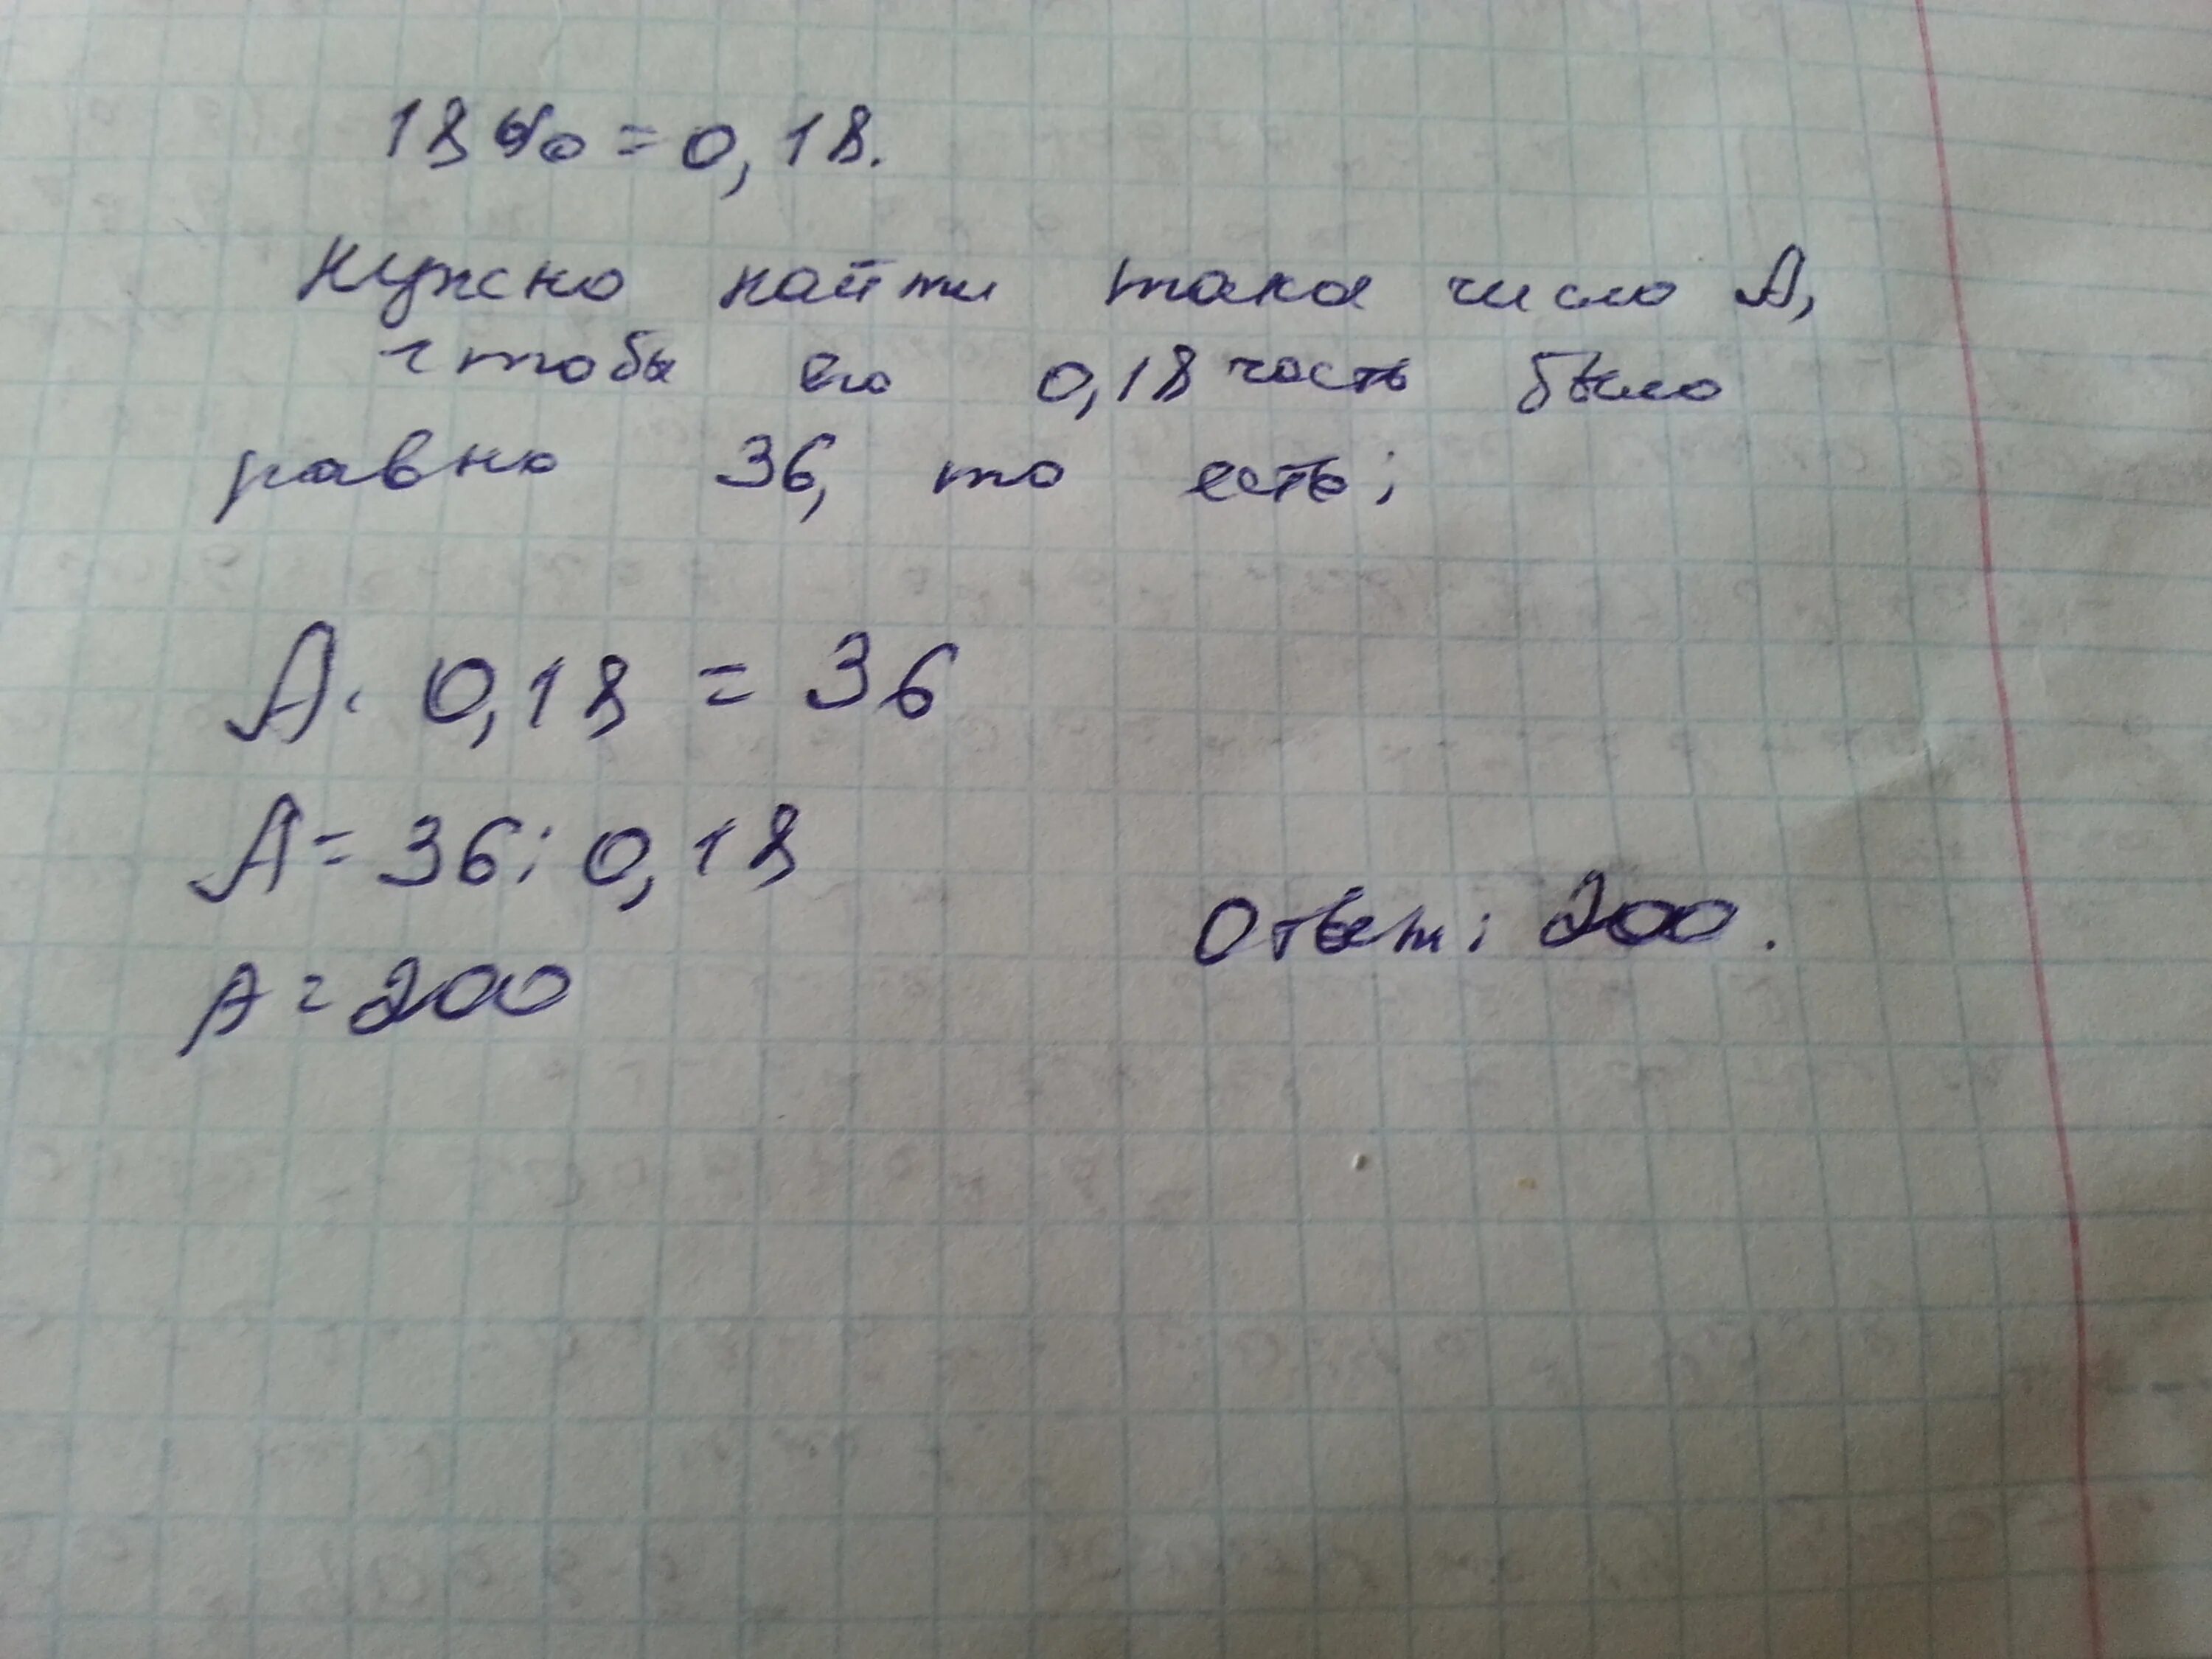 18% = 0,18.
Нужно найти така число А,
чтобы его 0,18 часть было
равно 36, то есть:
А · 0,18 = 36
А = 36 : 0,18
А = 200
Ответ: 200.